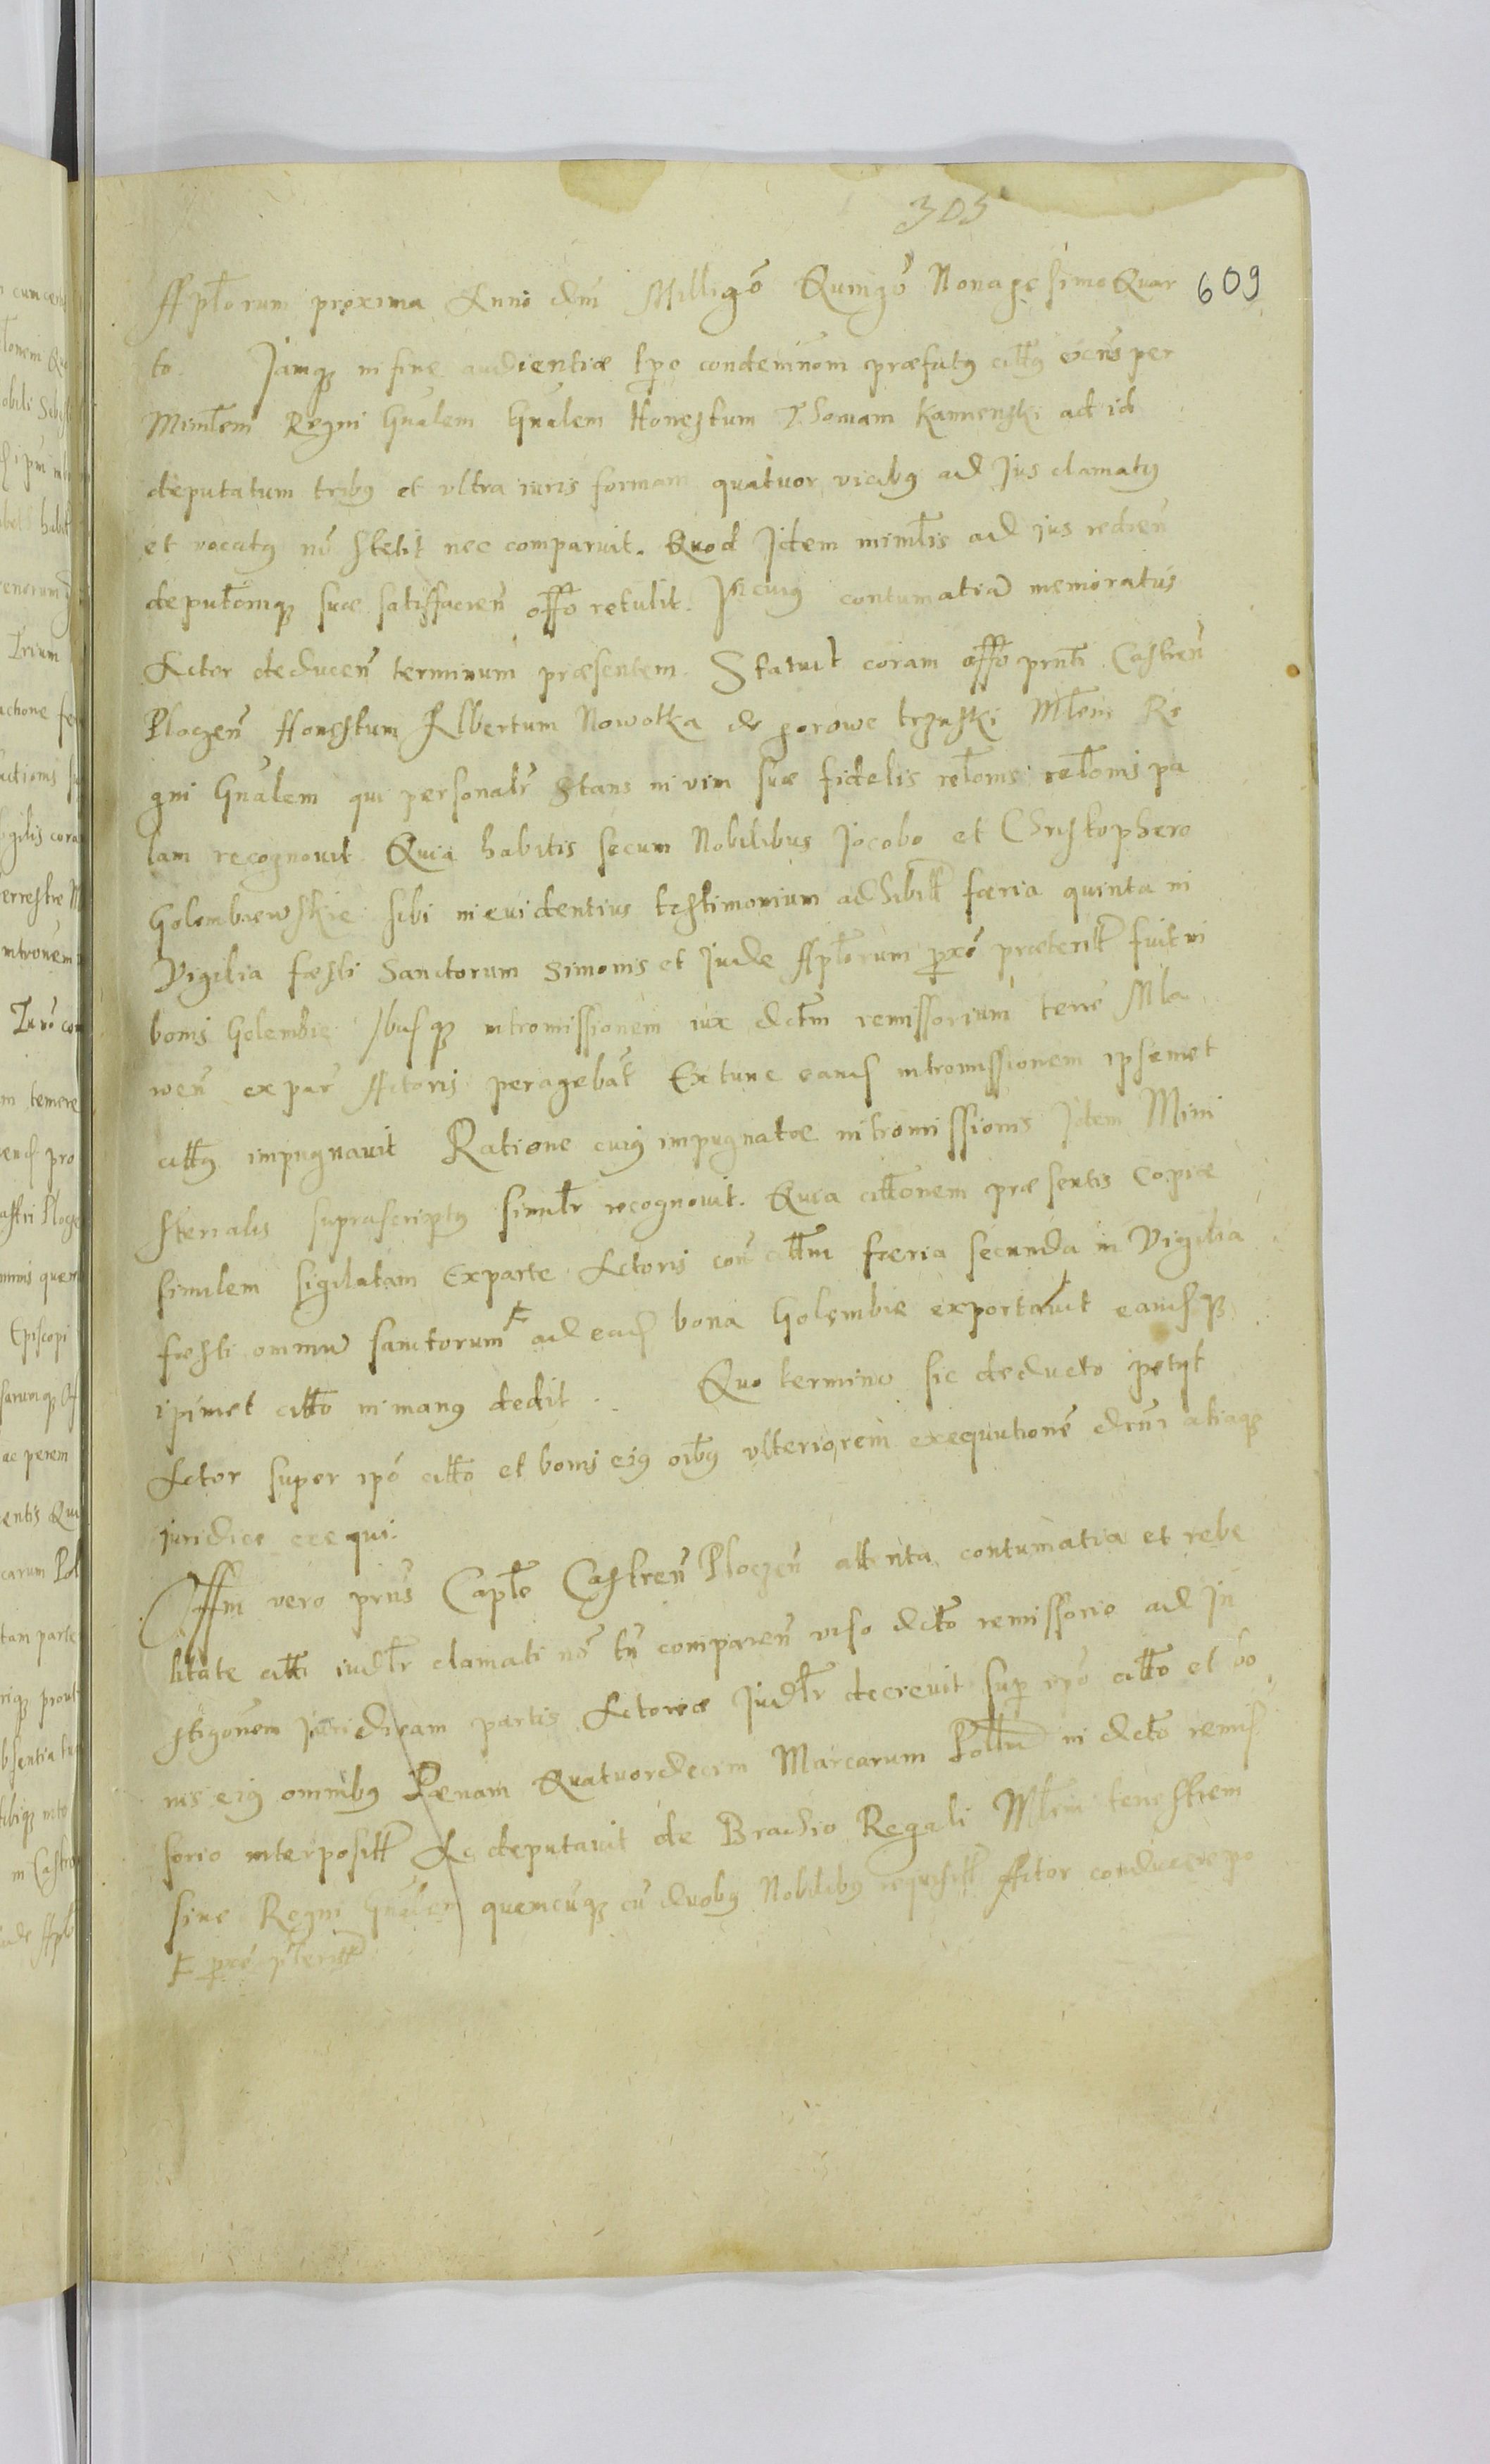 305
609
Apłorum proxima Anno dm̃ Milligõ Quingõ Nonagesimo Quar
to. Jamqꝫ in fine audientiæ tp̃e condemnõm præfatꝰ citt9 per
Ministlem Regni Gnalem Gnalem Honestum Thomam Kamienski ad id
deputatum tribꝰ et vltra iuris formam quatuor vicibꝰ ad Jus clamatꝰ
et vocatꝰ nõ stetit nec comparuit. Quod Jdem minĩlis ad ius redien̄
deputõmqꝫ suæ satisfacien̄ offõ retulit. Jn cuiꝰ contumatiã memoratus
Actor deducen̄ terminum præsentem. Statuit coram offõ prn̄ti Castren̄
Plocen̄ Honestum Albertum Nowotka de gorowe trzaski Mlem Re
gni Gnalem qui personalr̄ Stans in vim suæ fidelis relõnis relõnis pa
lam recognouit. Quia habitis secum Nobilibus Jacobo et Christophero
Golembiewskie sibi in euidentius testimonium adhibitt færia quinta in
Vigilia fæsti Sanctorum Simonis et Jude Apłorum proxẽ præteritt fuit in
bonis Golembie ibusqꝫ intromissionem iux dctm̃ remissorium terrẽ Mla
wen̄ ex par̄ Actoris peragebãt Extunc eand intromissionem ipsemet
cittꝰ impugnauit Ratione cuiꝰ impugnatæ intromissionis Jdem Mini
sterialis suprascriptꝰ similr̄ recognouit. Quia cittonem præsentis copiæ
similem sigilatam Exparte Actoris con̄ cittm̄ færia secunda in Vigilia
fæsti omniũ sanctorum ⱡ ad ead bona Golembie exportauit eandqꝫ
ipimet citto in manꝰ dedit. Quo termino sic deducto petyt
Actor super ipõ citto et bonis eiꝰ oĩbꝰ vlteriorem exequutionẽ dcrni aliaqꝫ
iuridice exequi.
Offm vero prn̄s Capłe Castren̄ Plocen̄ attenta contumatia et rebe
litate citti iudłr clamati nõ tñ comparen̄ viso dcto remissorio ad Jn
stigõnem Juridicam partis Actoreæ Judłr decreuit sup̱ ipõ citto et bo
nis eiꝰ omnibꝰ Pænam Quatuordecim Marcarum Polł in dcto remis
sorio interpositt Ac deputauit de Brachio Regali Mlem terrestrem
siue Regni Gnalem quemcũqꝫ cũ duobꝰ Nobilibꝰ Actor conducere po
ⱡ proxẽ pteritt